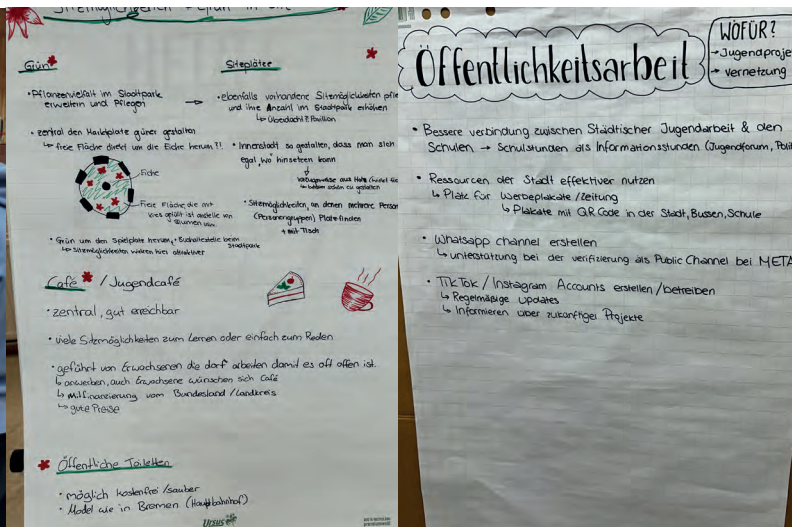 Sitzmöglichkeiten + Grün in
Grün
• Pflanzenvielfalt im Stadtpark
erweitern und Pflegen
• zentral den Marktplatz grüner gestalten
↳ freie Fläche direkt um die Eiche herum?!
Eiche
Freie Fläche die mit
Kies gefüllt ist anstelle von
Blumen usw.
• Grün um den Spielplatz herum, + Bushaltestelle beim
Stadtpark
↳ Sitzmöglichkeiten wären hier attraktiver
Sitzplätze
→ • ebenfalls vorhandene Sitzmöglichkeiten pfle
und ihre Anzahl im Stadtpark erhöhen
↳ Überdacht?! Pavillon
• Innenstadt so gestalten, dass man sich
egal, wo hinsetzen kann
vorzugsweise aus Holz
schön zu gestalten
• Sitzmöglichkeiten, an denen mehrere Person
(Personengruppen) Platz finden
+ mit Tisch
Café / Jugendcafé
• zentral, gut erreichbar
• viele Sitzmöglichkeiten zum Lernen oder einfach zum Reden
• geführt von Erwachsenen die dort arbeiten damit es oft offen ist.
↳ anwerben, auch Erwachsene wünschen sich Café
↳ Mitfinanzierung vom Bundesland / Landkreis
↳ gute Preise
Öffentliche Toiletten
• möglich kostenfrei / sauber
• Model wie in Bremen (Hauptbahnhof)
Ursus
Öffentlichkeitsarbeit
WOFÜR?
→ Jugendproje
→ Vernetzung
• Bessere verbindung zwischen Städtischer Jugendarbeit & den
Schulen → Schulstunden als Informationsstunden (Jugendforum, Polit
• Ressourcen der Stadt effektiver nutzen
↳ Platz für Werbeplakate / Zeitung
↳ Plakate mit QR Code in der Stadt, Bussen, Schule
• Whatsapp channel erstellen
↳ unterstützung bei der verifizierung als Public Channel bei META
• TikTok / Instagram Accounts erstellen / betreiben
↳ Regelmäßige updates
↳ Informieren über zukünftige Projekte